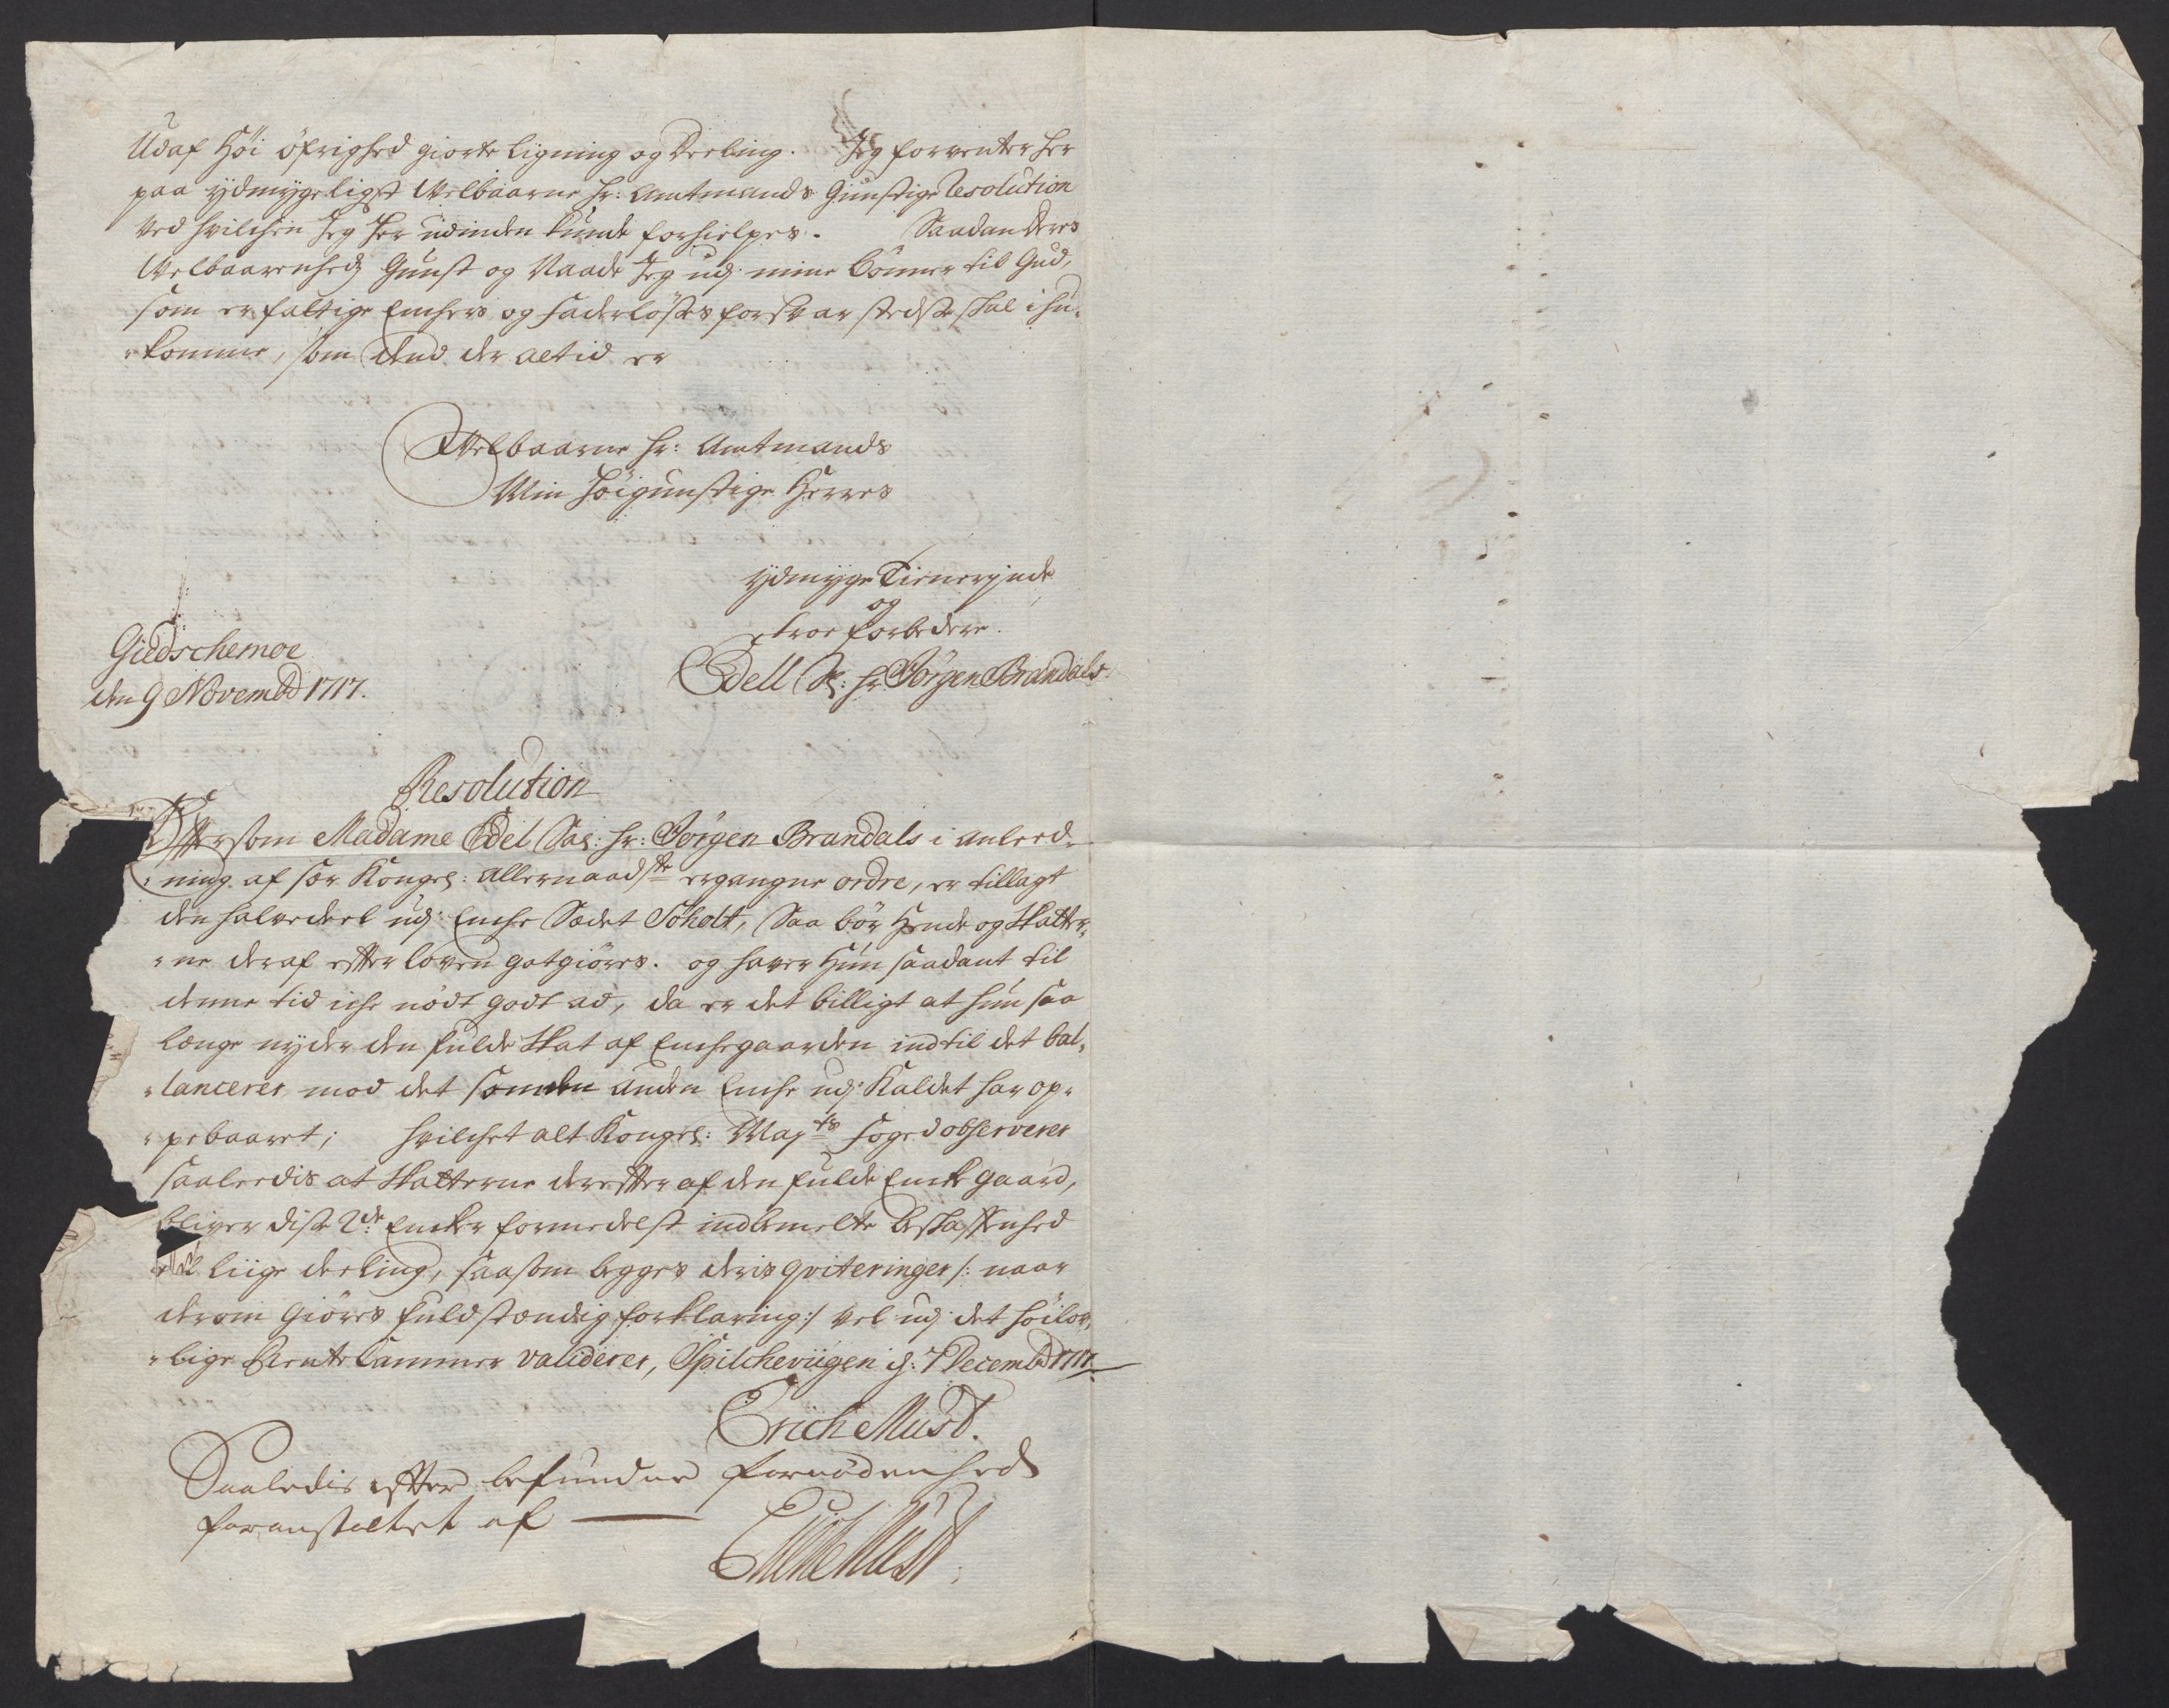 Udaf Höi öfrighed giorte ligning og Deeling. Jeg forventer her
paa ydmygeligst Welbaarne Hr: Amtmands Gunstige Resolution
ved hvilchen Jeg her udinden kunde forhielpes. Saadan Deres
Welbaarenheds Gunst og Naade Jeg udj mine bönner til Gud,
som er fattige Enchers og faderlöses forsvar stedse skal ihu-
-komme, som dend der altid er
Welbaarne Hr: Amtmands
Min höigunstige Herres
ydmyge Tienerinde
og
troe forbedere.
Edell Sl: hr Jörgen Brandals
Giedschemoe
den 9 Novembr 1717.
Resolution
Efftersom Madame Edel Sal: Hr: Jörgen Brandals i anleed-
-ning af sær Kongel: allernaadste ergangne ordre, er tillagt
den halvedeel udj Enche Sædet Soholt, Saa bör Hende og Skatter-
-ne deraf effter loven gotgiöres. og haver Hun saadant til
denne tid iche nödt godt ad, da er det billigt at hun saa
længe nyder den fulde Skat af Enchegaarden indtil det bal-
-lancerer mod det som den anden Enche udj Kaldet har op-
-pebaaret; hvilchet alt Kongel: Mayts foged observerer
saaleedis at Skatterne dereffter af den fulde Enkegaard,
bliver disse 2de Encker formedelst indbemelte beskaffenhed
till liige deeling, saasom begges deris qviteringer /: naar
derom Giöres fuldstændig forklaring :/ vel udj det höilov-
-lige Rente Cammer validerer, Spilcheviigen d: 7 Decembr 1717
Erich Must.
Saaledis effter befundne fornödenhed
foranstaltet af
Erich Must.